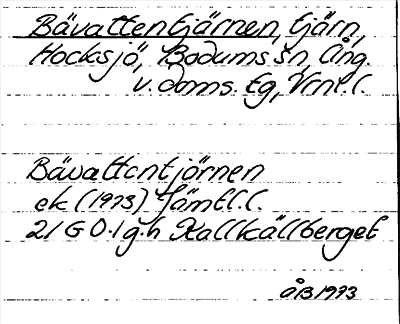 Bävattentjärnen, tjärn,
Hocksjö, Bodums sn, Ång.
v. doms. tg, Vrnl. l.
Bävattentjörnen
ek (1973) Jämtl. l.
21 G 0-1 g.h Kallkällberget
ÅB 1973